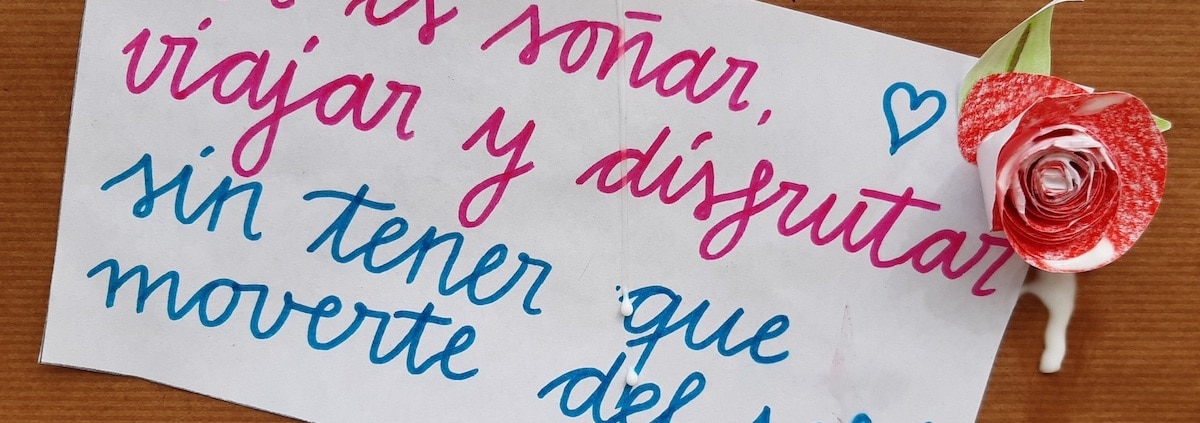 es soñar,
viajar y disfrutar
sin tener que
moverte del